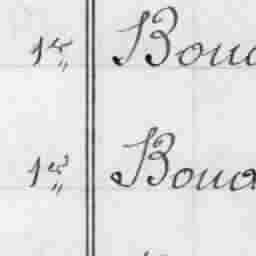 1er Boud
1er Boud